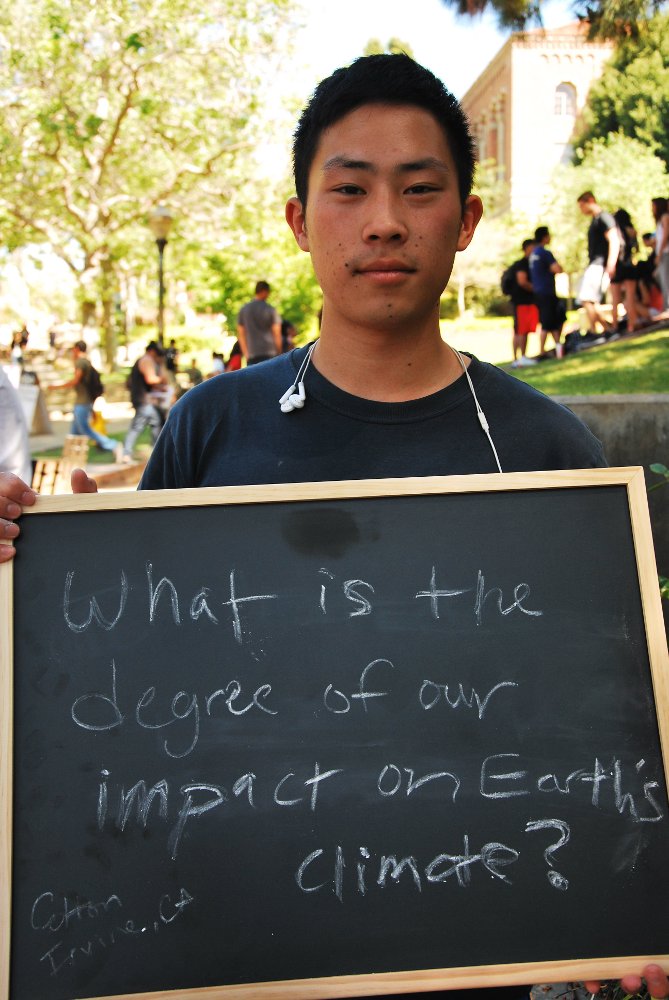 What is the
degree of our
impact on Earth's
climate?
Colton
Irvine, CA